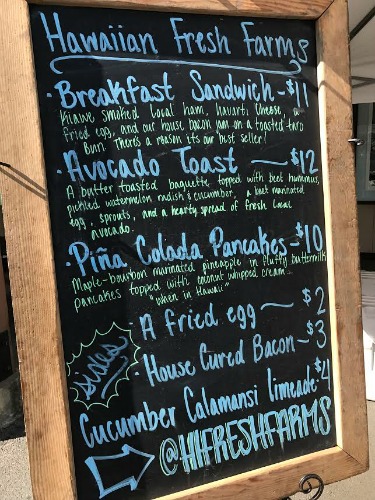 Hawaiian Fresh Farms
· Breakfast Sandwich - $11
Kiawe smoked local ham, havarti cheese, a
fried egg, and our house bacon jam on a toasted taro
bun. There's a reason its our best seller!
· Avocado Toast — $12
A butter toasted baguette topped with beet hummus,
pickled watermelon radish & cucumber, a beet marinated
egg, sprouts, and a hearty spread of fresh local
avocado.
· Piña Colada Pancakes - $10
Maple-bourbon marinated pineapple in fluffy buttermilk
pancakes topped with coconut whipped cream...
"when in Hawaii"
sides
· A fried egg ~ $2
· House Cured Bacon ~ $3
Cucumber Calamansi limeade · $4
@HIFRESHFARMS